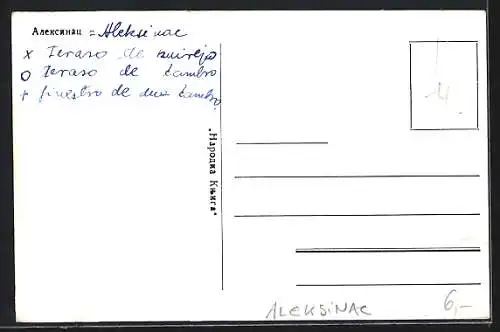 Алексинац = Aleksinac
x Teraso de
o Teraso de ĉambro
+ finestro de mia ĉambro
„Народна Књига"
14
ALEKSINAC
6,-